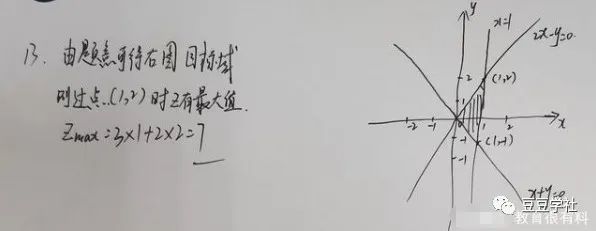 13. 由题意可得右图目标域
则过点(1,2)时Z有最大值.
Zmax=3×1+2×2=7
y
x=1
2x-y=0
2
(1,2)
1
-2 -1 0 1 2 x
-1 (1,-1)
-1
x+y=0
豆豆学社
教育很有料